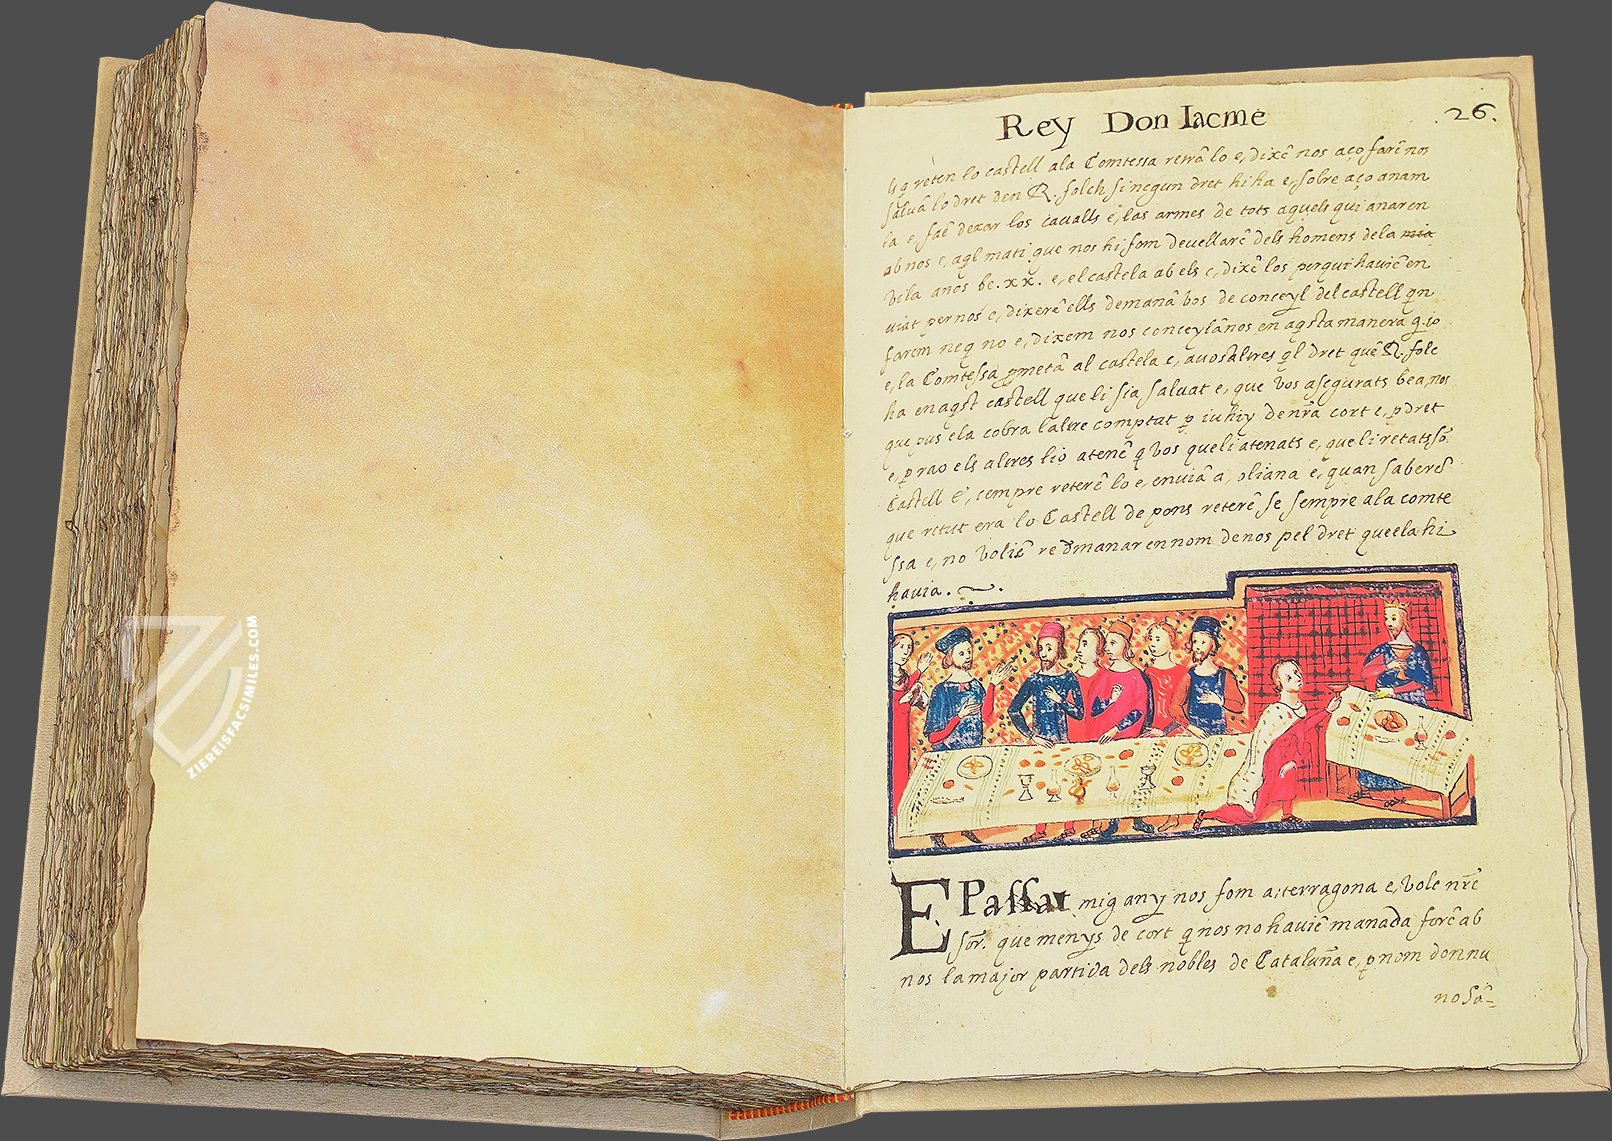 ZIEREISFACSIMILES.COM
Rey Don Iacme 26.
q reten lo castell ala Comtessa retrã lo e, dixẽ nos aço farẽ nos
salvã lo dret den R. folch si negun dret hi ha e, sobre aço anam
la e, faẽ dexar los cavalls e, las armes de tots aquels qui anaren
ab nos e, aql mati que nos hi fom devellarẽ dels homens dela mia
vila anos be .xx. e, el castela ab els e, dixẽ los perqui havien en
viat per nos e, dixerẽ ells demanã vos de conceyl del castell q̃n
farem neq no e, dixem nos conceylãnos en aqsta manera q. io
e, la Comtessa pmetã al castela e, avos altres ql dret quẽ R. folc
ha en aqst castell que li sia salvat e, que vos asegurats bea nos
que pus ela cobra laltre comptat p iuhiy de nrã cort e, p dret
e, p rao els altres lio atenẽ q vos que li atenats e, que li retats sõ
Castell E, sempre reterẽ lo e, enviã a, oliana e, quan saberẽ
que retut era lo Castell de pons reterẽ se sempre ala comte
ssa e, no voliẽ re dmanar en nom de nos pel dret que ela hi
havia.
E Passat mig any nos fom a, terragona e, volc nrẽ
sõr. que menys de cort q nos no haviẽ manada forẽ ab
nos la major partida dels nobles de Cataluña e, p nom don nu
no Sã-